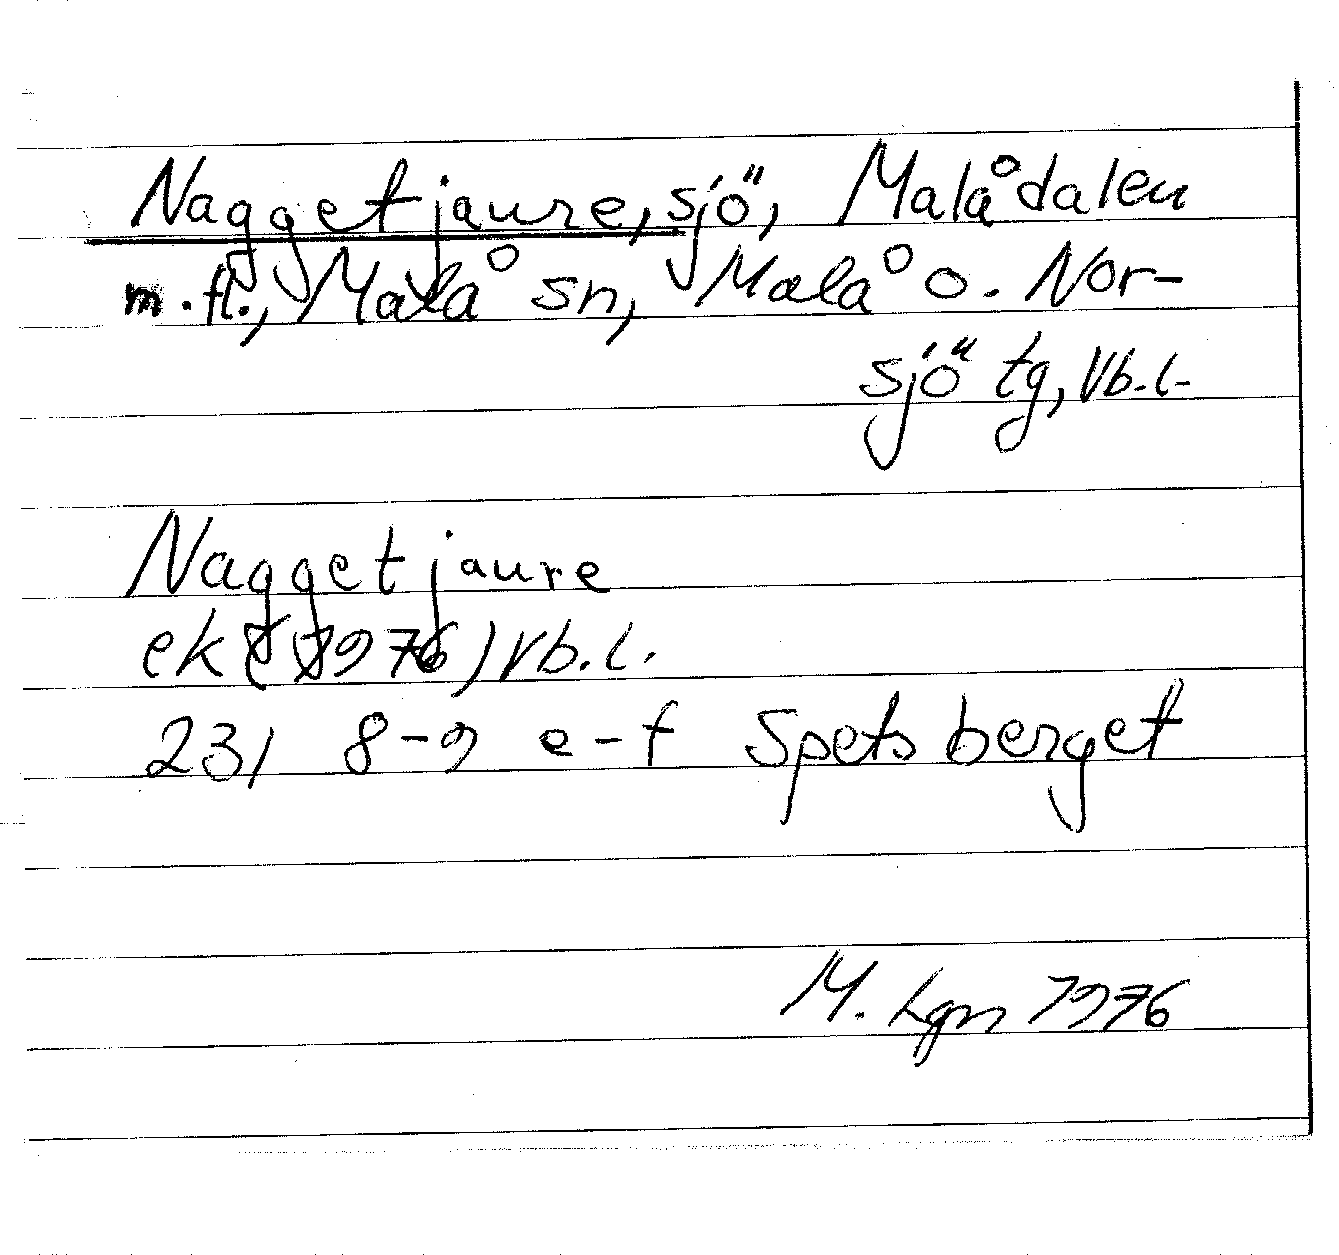 Naggetjaure, sjö, Malådalen
m.fl., Malå sn, Malå o. Nor-
sjö tg, Vb.l.
Naggetjaure
ek (1976) Vb.l.
231 8-9 e-f Spetsberget
M. Lgn 1976